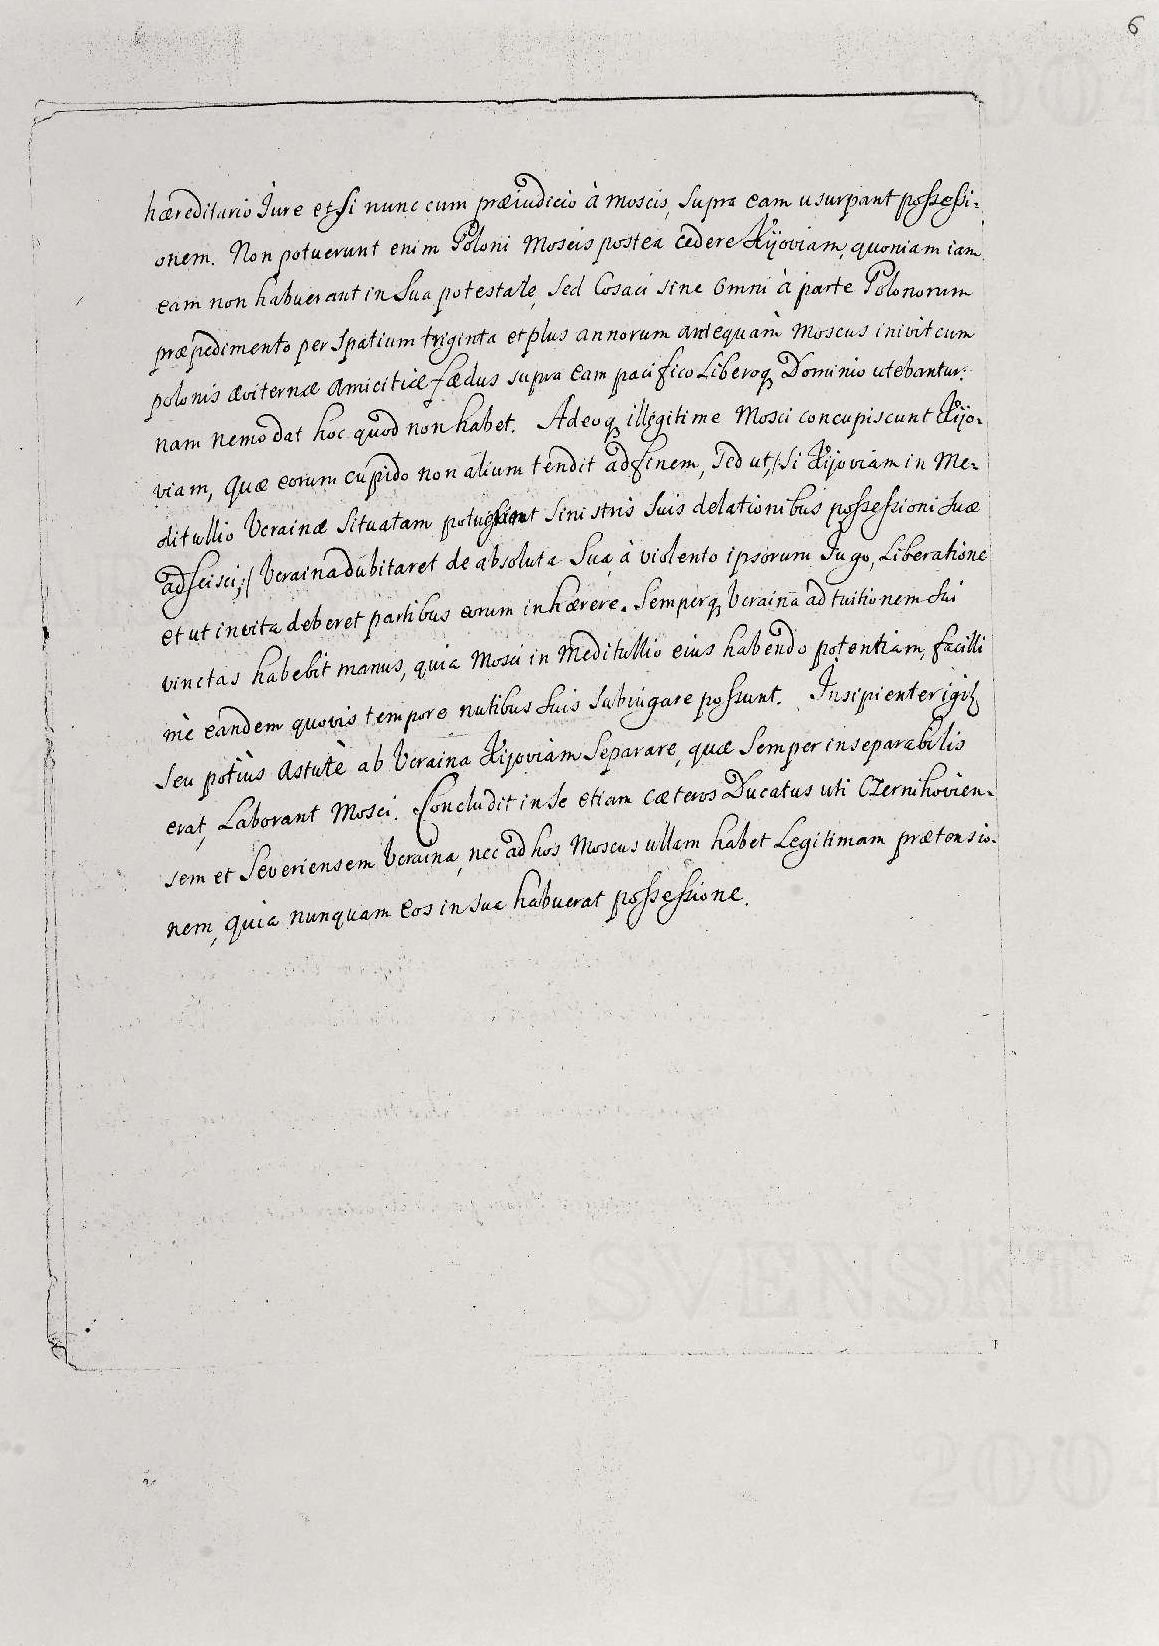 6
hæreditario Jure etsi nunc cum præiudicio à Moscis, supra eam usurpant possessi-
onem. Non potuerunt enim Poloni Moscis postea cedere Kijoviam, quoniam iam
eam non habuerant in sua potestate, sed Cosaci sine omni à parte Polonorum
præpedimento per spatium triginta et plus annorum antequam Moscus inivit cum
polonis æviternæ amicitiæ fædus supra eam pacifico Liberoq, Dominio utebantur:
nam nemo dat hoc quod non habet. Adeoq, illegitime Mosci concupiscunt Kijo-
viam, quæ eorum cupido non alium tendit ad finem, sed ut,/ si Kijoviam in Me-
ditullio Vcrainæ situatam sinistris suis delationibus possessioni suæ
adscisci;/ Vcraina dubitaret de absoluta sua à violento ipsorum Jugo, Liberatione
et ut invita deberet partibus eorum inhærere. Semperq, Vcraina ad tuitionem sui
vinctas habebit manus, quia Mosci in meditullio eius habendo potentiam, facilli
mè eandem quovis tempore nutibus suis subiugare possunt. Insipienter igit
seu potiùs astutè ab Vcraina Kijoviam separare, quæ semper inseparabilis
erat, Laborant Mosci. Concludit in se etiam cæteros Ducatus uti Czernihovien-
sem et Severiensem Vcraina, nec ad hos Moscus ullam habet Legitimam prætensio-
nem, quia nunquam eos in sua habuerat possessione.
SVENSKT A